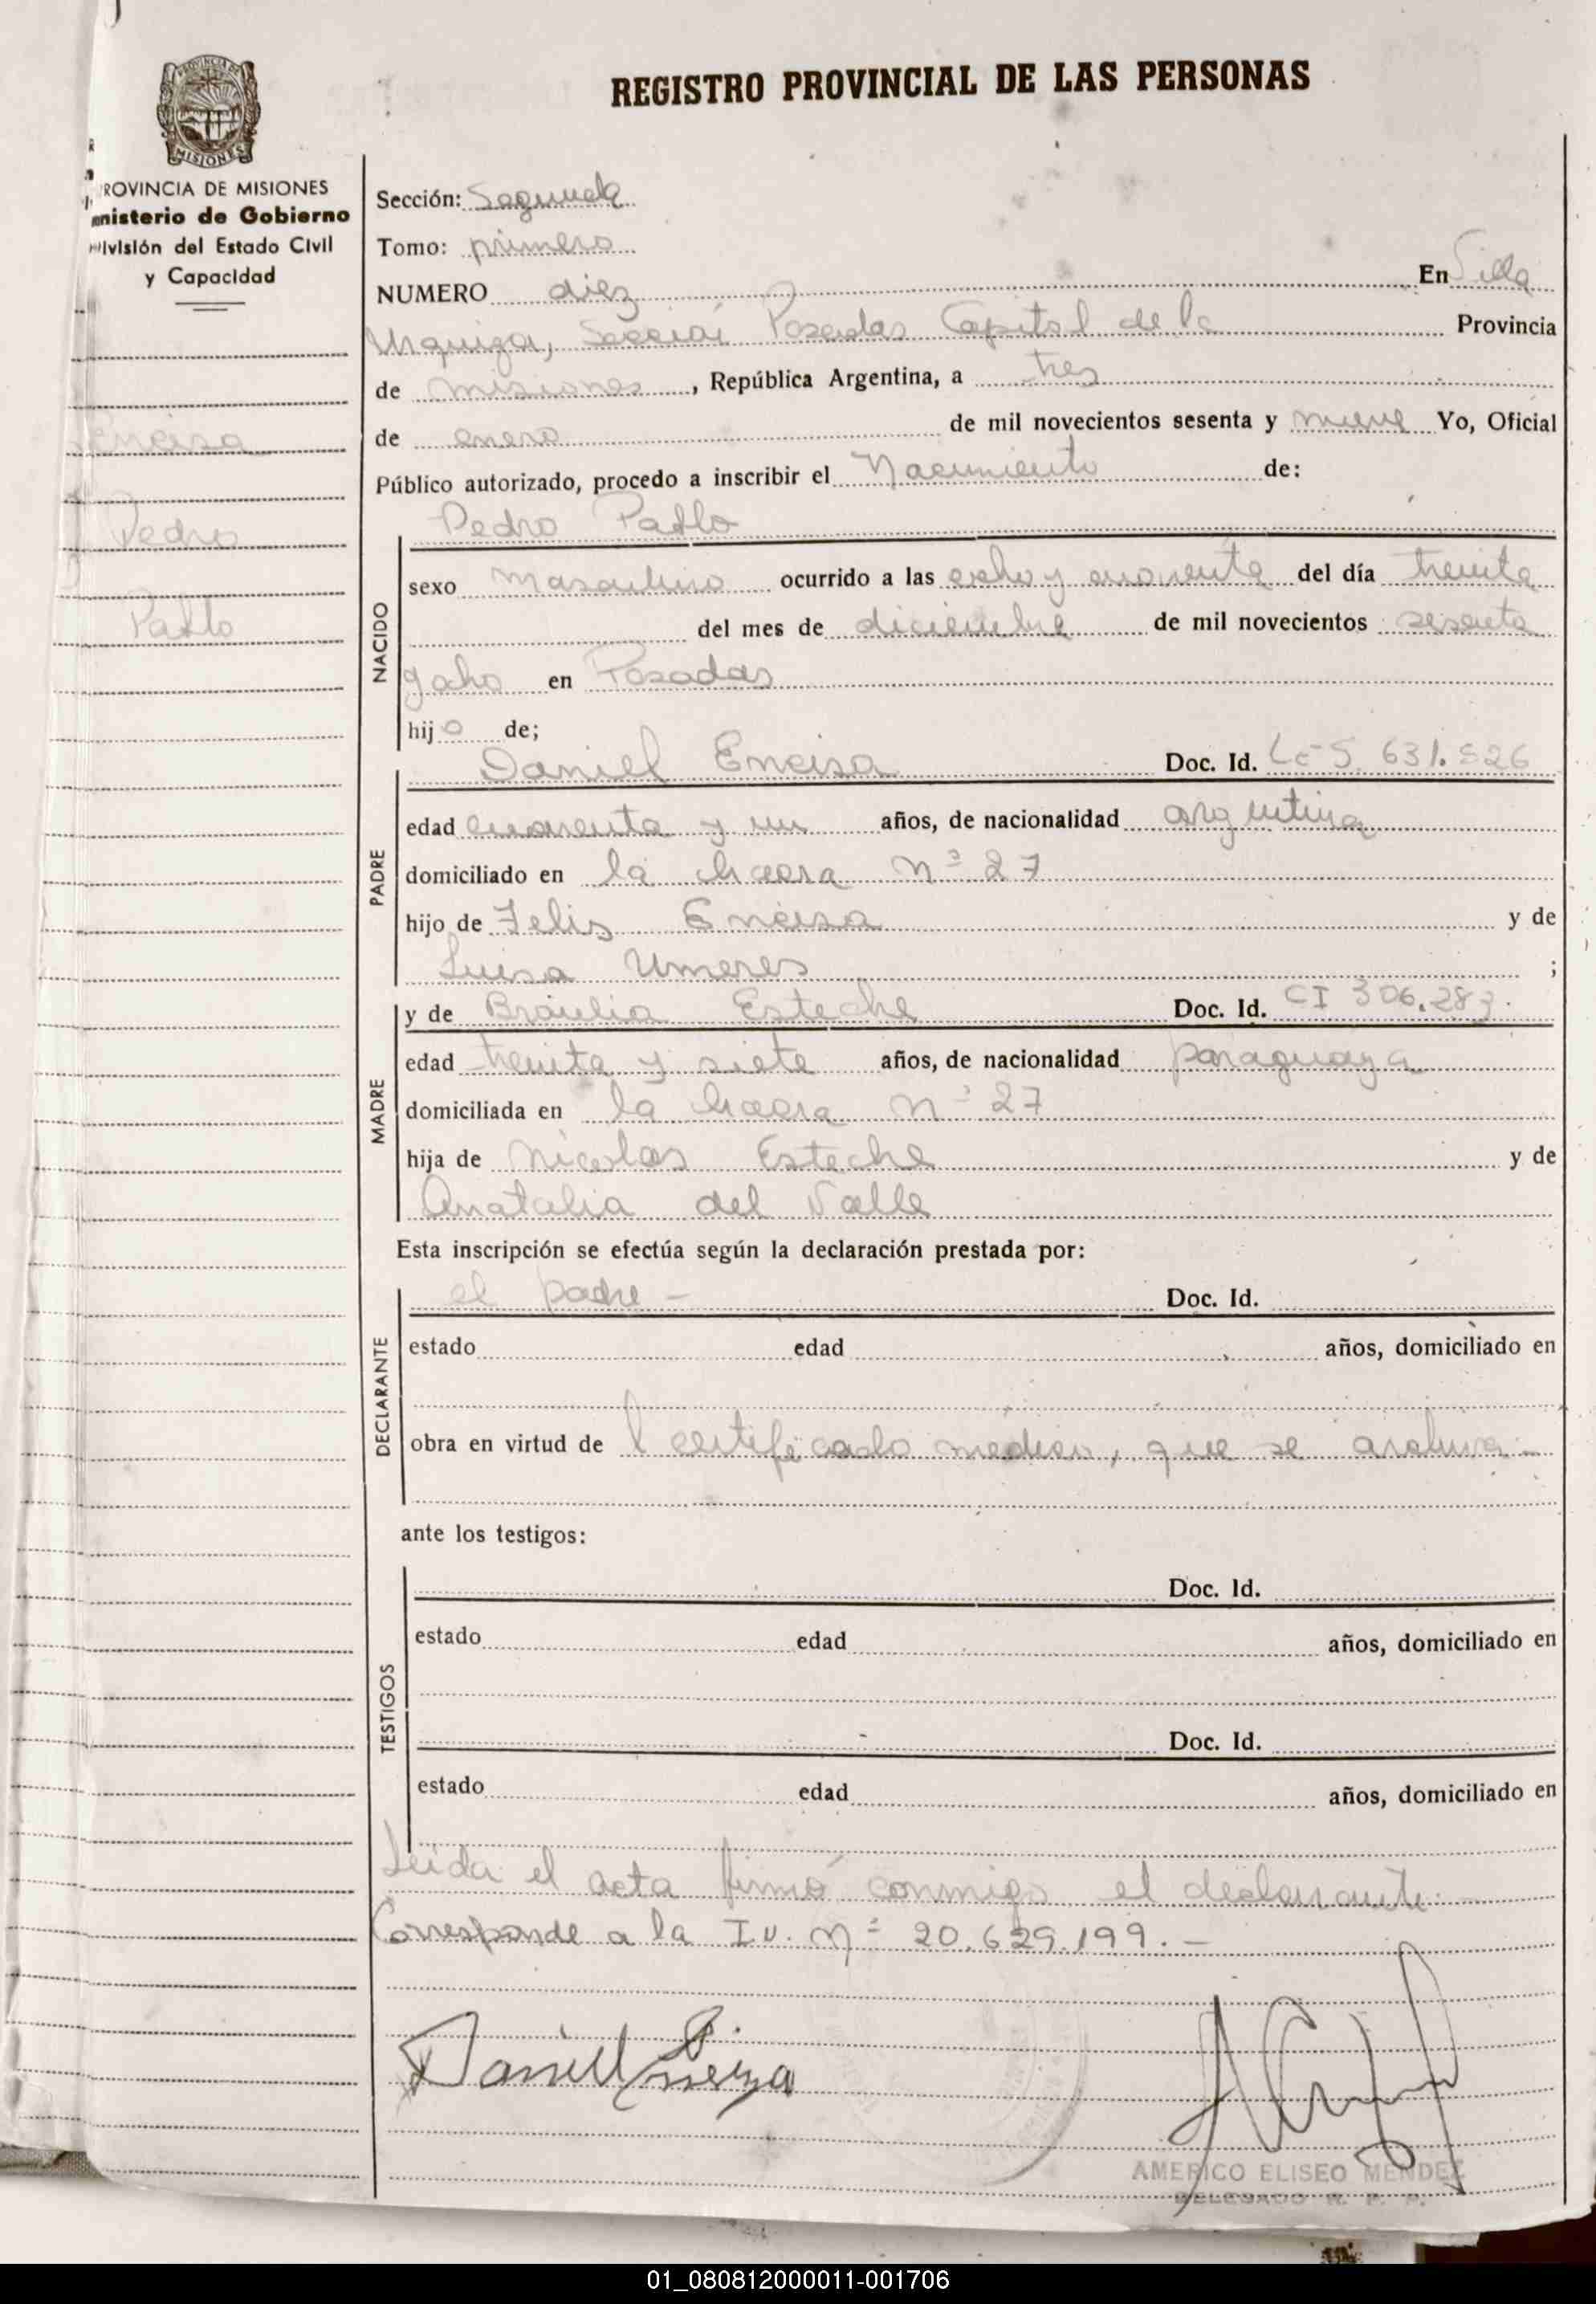 REGISTRO PROVINCIAL DE LAS PERSONAS
MISIONES
ROVINCIA DE MISIONES
nisterio de Gobierno
ivisión del Estado Civil
y Capacidad
Enciso
Pedro
Pablo
Sección: Segunda
Tomo: primero
NUMERO diez En Villa
Urquiza, Sección Posadas Capital de la Provincia
de misiones, República Argentina, a tres
de enero de mil novecientos sesenta y nueve Yo, Oficial
Público autorizado, procedo a inscribir el Nacimiento de:
NACIDO
Pedro Pablo
sexo Masculino ocurrido a las ocho y cuarenta del día treinta
del mes de diciembre de mil novecientos sesenta
y ocho en Posadas
hijo de;
PADRE
Daniel Encisa Doc. Id. LE 5.631.526
edad cuarenta y un años, de nacionalidad argentina
domiciliado en la chacra Nº 27
hijo de Felis Encisa y de
Luisa Umeres ;
MADRE
y de Braulia Esteche Doc. Id. CI 306.283.
edad treinta y siete años, de nacionalidad paraguaya
domiciliada en la chacra Nº 27
hija de Nicolas Esteche y de
Anatalia del Valle
Esta inscripción se efectúa según la declaración prestada por:
DECLARANTE
el padre - Doc. Id.
estado edad años, domiciliado en
obra en virtud de l certificado medico, que se archiva -
ante los testigos:
TESTIGOS
Doc. Id.
estado edad años, domiciliado en
Doc. Id.
estado edad años, domiciliado en
Leida el acta firmó conmigo el declarante. -
Corresponde a la I.U. Nº 20.629.199. -
Daniel Encisa
AMERICO ELISEO MENDEZ
DELEGADO R. P. P.
01_080812000011-001706